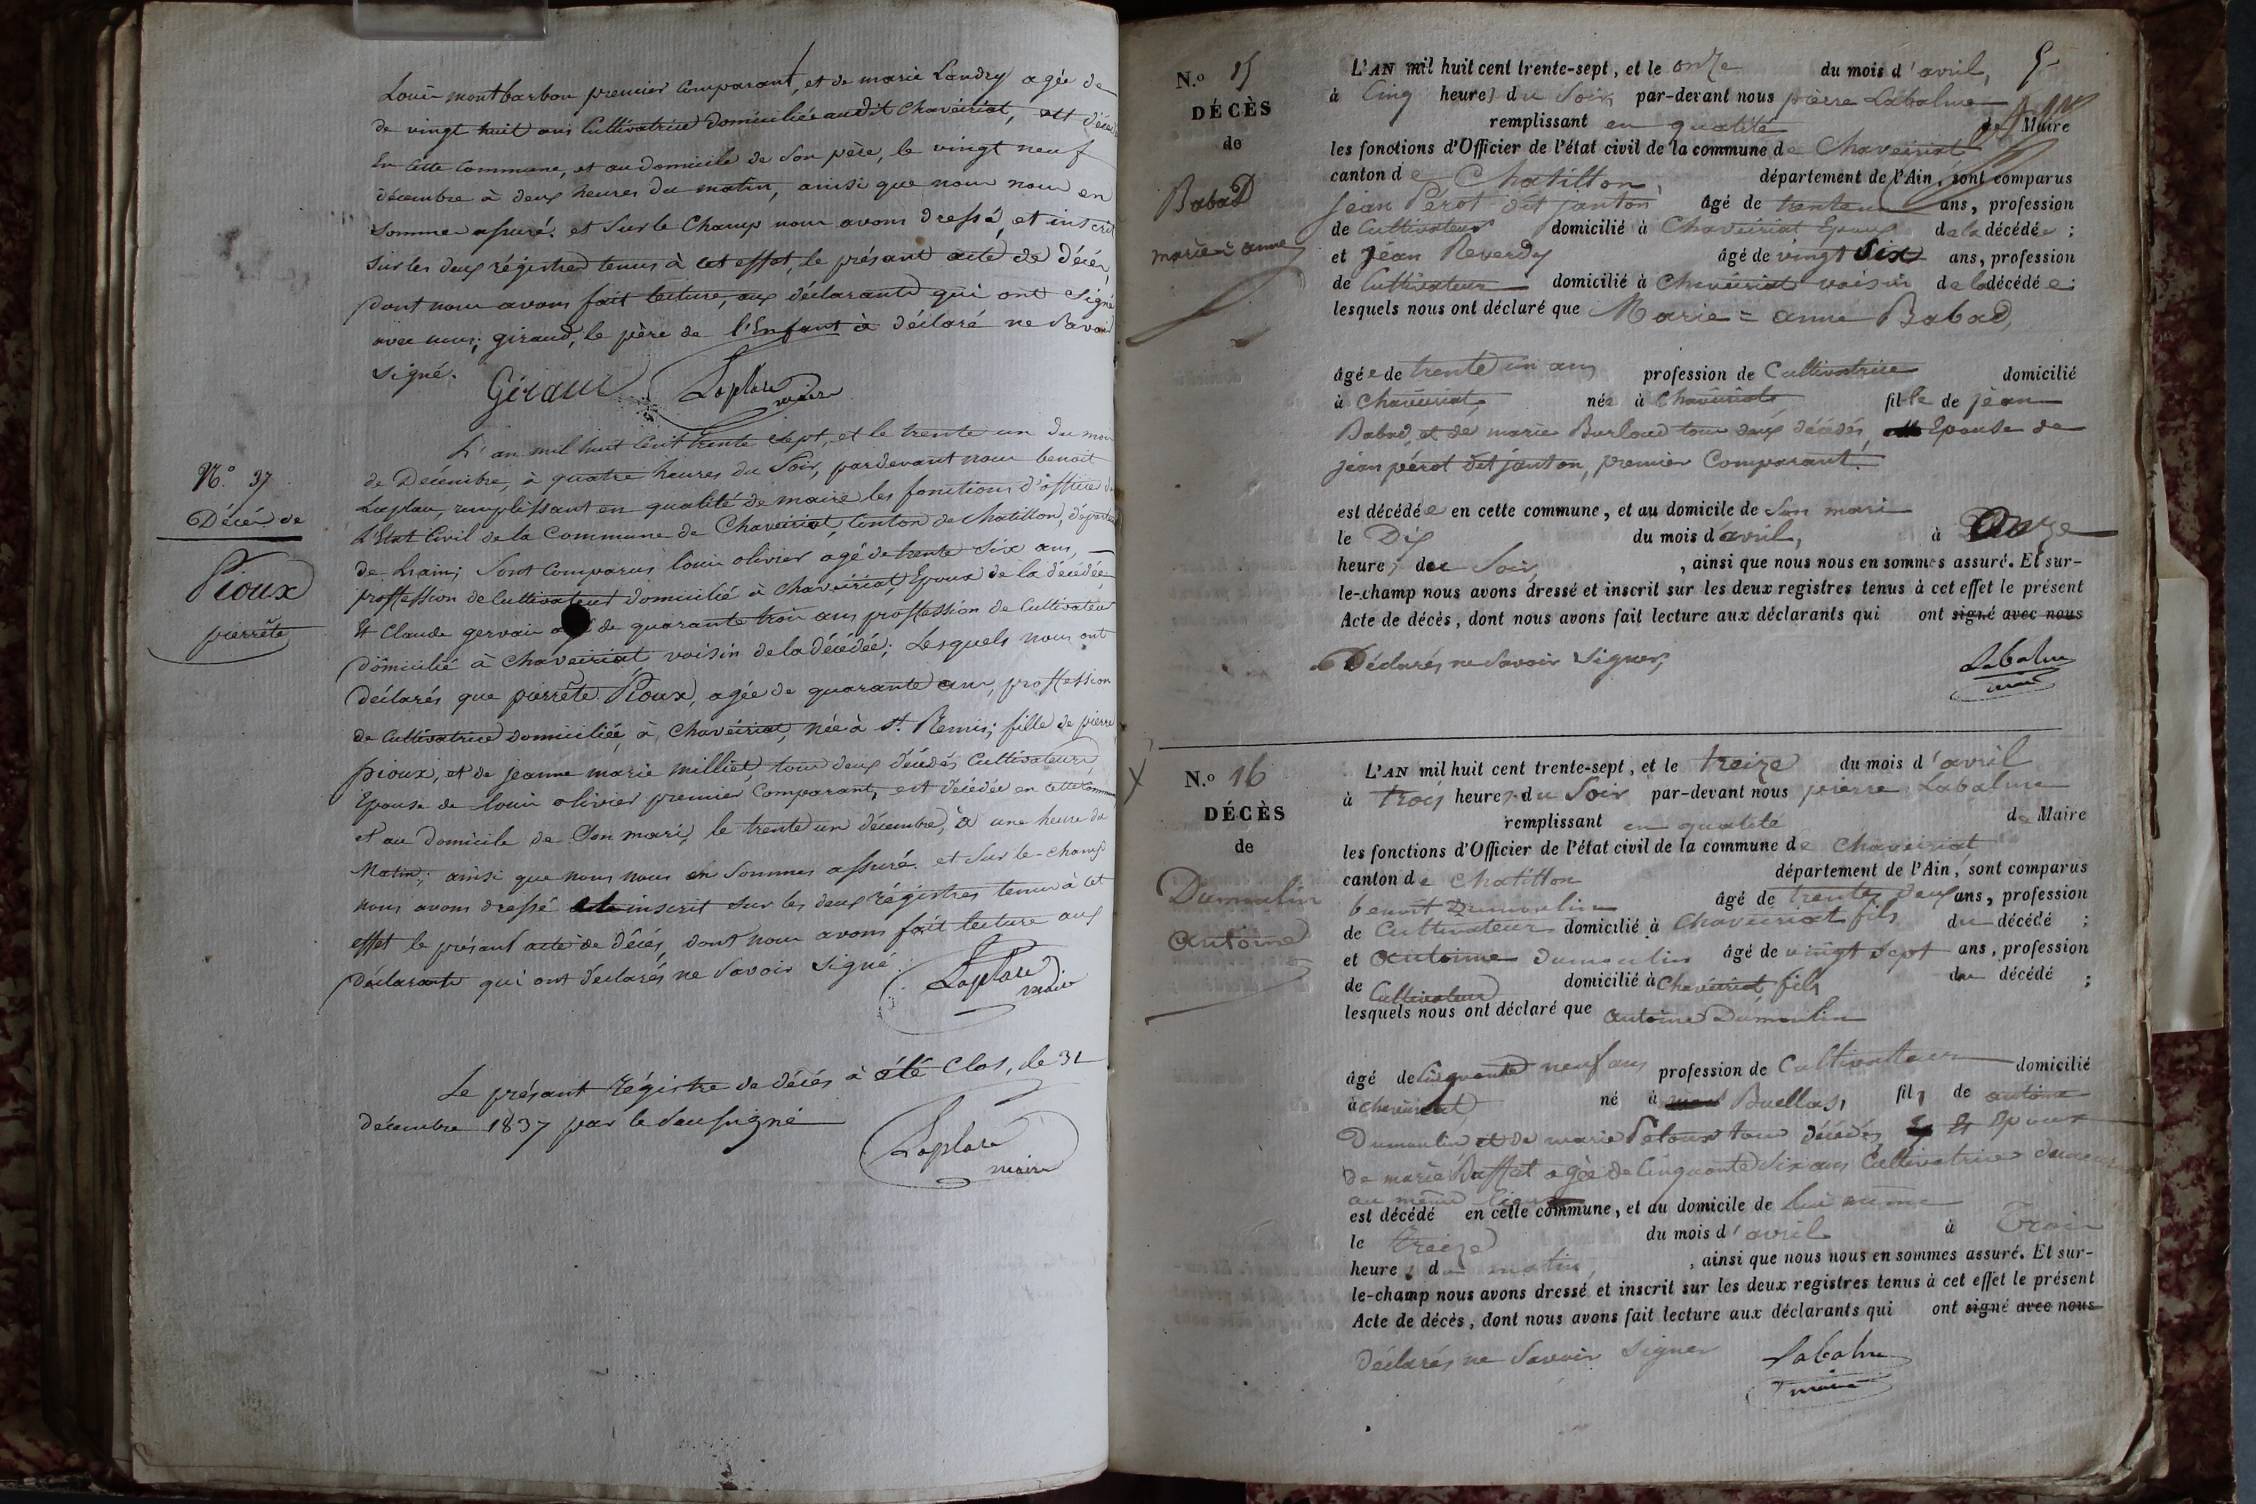 Louis montbarbon premier Comparant, et de marie Landry agée de
de vingt huit ans Cultivatrice domiciliée audit Chaveiriat, est décé
En Cette Commune, et au domicile de Son père, le vingt neuf
décembre à deux heures du matin, ainsi que nous nous en
Somme assuré. et Sur le Champ nous avons dressé, et inscrit
Sur les deux régistres tenus à cet effet, le présant acte de décés,
dont nous avons fait lecture, aux déclarants qui ont Signé
avec nous; giraud, le père de l'Enfant à déclaré ne Savoir
Signé.
Giraud Laplace maire
N.º 37
Décés de
Pioux
pierrête
L'an mil huit Cent trente Sept, et le trente un du mois
de Décembre, à quatre heures du Soir, pardevant nous benoit
Laplace, remplissant en qualité de maire les fonctions d'officier de
L'Etat Civil de la Commune de Chaveiriat, Canton de Chatillon, départem
de L'ain; Sont Comparus louis olivier agé de trente Six ans,
proffession de Cultivateur domicilié à Chavéiriat, Epoux de la décédée
Et Claude gervais de quarante trois ans proffession de Cultivateur
Domicilié à Chaveiriat voisin de la décédée; Lesquels nous ont
Déclarés que pierrête Pioux, agée de quarante ans, proffession
de Cultivatrice domiciliée, à Chavéiriat, née à St. Remis; fille de pierre
pioux, et de jeanne marie milliet, tous deux décédés Cultivateurs,
Epouse de louis olivier premier Comparant, est décédée en cette Commune
et au Domicile de Son mari, le trente un décembre, à une heure du
Matin; ainsi que nous nous en Sommes assuré. et Sur le-champ
nous avons dressé inscrit sur les deux régistres tenus à cet
effet le présant acte de décés, dont nous avons fait lecture aux
Déclarants qui ont déclarés ne Savoir Signé.
Laplace maire
Le présant régistre de décés à été Clos, le 31
décembre 1837 par le Sousigné
Laplace maire
N.º 15
DÉCÈS
de
Babad
marie-anne
5
L'AN mil huit cent trente-sept, et le onze du mois d'avril,
à Cinq heures du Soir, par-devant nous pierre Labalme
remplissant en qualité de Maire
les fonctions d'Officier de l'état civil de la commune de Chaveiriat
canton de Chatillon, département de l'Ain, sont comparus
jean Pérot dit janton âgé de trente ans, profession
de Cultivateur domicilié à Chaveiriat Epoux de la décédée;
et Jéan Reverdy âgé de vingt Six ans, profession
de Cultivateur domicilié à Chavéiriat voisin de la décédée;
lesquels nous ont déclaré que Marie = anne Babad,
âgée de trente un ans profession de Cultivatrice domicilié
à Chavéiriat, née à Chavéiriat, fille de jean
Babad, et de marie Burloud tous deux décédés, Epouse de
jéan pérot dit janton, premier Comparant.
est décédée en cette commune, et au domicile de Son mari
le Dix du mois d'avril, à Onze
heures du Soir, ainsi que nous nous en sommes assuré. Et sur-
le-champ nous avons dressé et inscrit sur les deux registres tenus à cet effet le présent
Acte de décès, dont nous avons fait lecture aux déclarants qui ont signé avec nous
Déclarés ne Savoir Signer,
Labalme
maire
N.º 16
DÉCÈS
de
Dumoulin
antoine
L'AN mil huit cent trente-sept, et le treize du mois d'avril
à trois heures du Soir par-devant nous pierre Labalme
remplissant en qualité de Maire
les fonctions d'Officier de l'état civil de la commune de Chaveiriat
canton de Chatillon département de l'Ain, sont comparus
benoit Dumoulin âgé de trente deux ans, profession
de Cultivateur domicilié à Chaveiriat fils du décédé;
et antoine Dumoulin âgé de vingt Sept ans, profession
de Cultivateur domicilié à Chavéiriat fils du décédé;
lesquels nous ont déclaré que antoine Dumoulin
âgé de Cinquante neuf ans profession de Cultivateur domicilié
à Chavéiriat né à Buellas, fils de antoine
Dumoulin et de marie tous décédés, Epoux
De marie Buffet agée de Cinquante Six ans Cultivatrice
au même lieu
est décédé en cette commune, et au domicile de lui même
le treize du mois d'avril à Trois
heures du matin, ainsi que nous nous en sommes assuré. Et sur-
le-champ nous avons dressé et inscrit sur les deux registres tenus à cet effet le présent
Acte de décès, dont nous avons fait lecture aux déclarants qui ont signé avec nous
Déclarés ne Savoir Signer
Labalme
maire